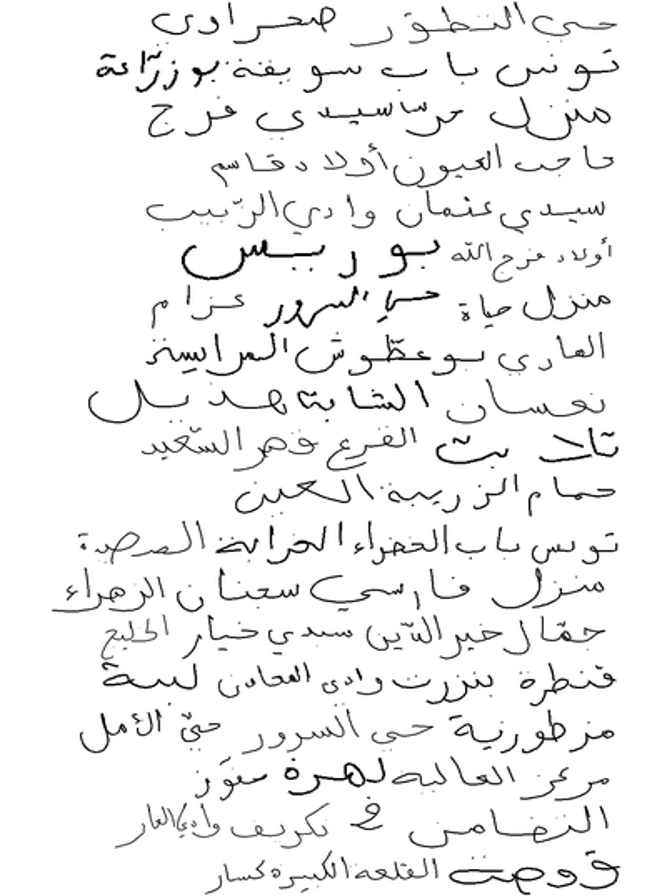 حي التطوّر صحراوى
تونس باب سويقة بوزرّاعة
منزل حر سيدي فرج
حاجب العيون أولاد قاسم
سيدي عثمان وادي الزّبيب
أولاد فرج الله بوربيس
منزل حياة حي السرور عزام
الهادي بوعطّوش العرايس
نعسان الشابة هذيل
تلابت القرع قصر السّعيد
حمام الزريبة العين
تونس باب الخضراء الخرابة الصرصدة
منزل فارسي سجنان الزهراء
جمّال خير الدّين سيدي خيار الخليج
قنطرة بنزرت وادى المعادن لسة
مزطورية حي السرور حيّ الأمل
مركز العالية لهرة
التضامن 2 تكريف وادي الغار
قرمت القلعة الكبيرة كسار